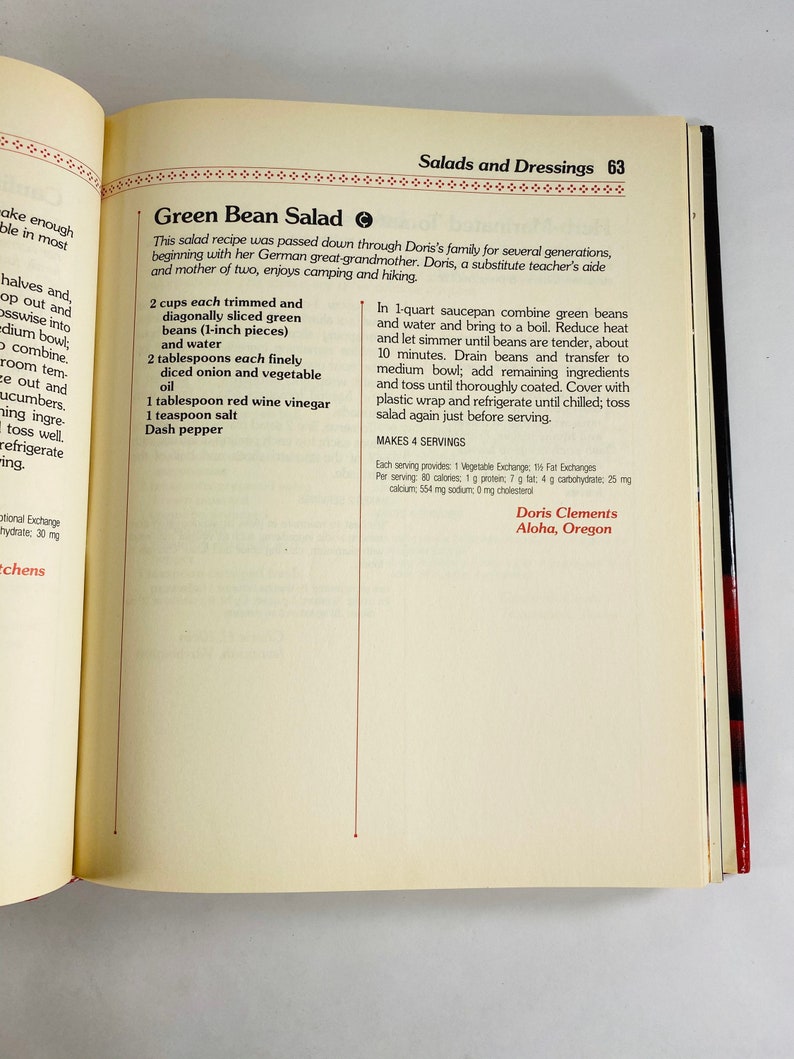 ake enough
ble in most
halves and,
op out and
osswise into
edium bowl;
o combine.
room tem-
ze out and
ucumbers.
ning ingre-
l toss well.
refrigerate
ving.
otional Exchange
hydrate; 30 mg
tchens
Salads and Dressings 63
Green Bean Salad
This salad recipe was passed down through Doris's family for several generations,
beginning with her German great-grandmother. Doris, a substitute teacher's aide
and mother of two, enjoys camping and hiking.
2 cups each trimmed and
diagonally sliced green
beans (1-inch pieces)
and water
2 tablespoons each finely
diced onion and vegetable
oil
1 tablespoon red wine vinegar
1 teaspoon salt
Dash pepper
In 1-quart saucepan combine green beans
and water and bring to a boil. Reduce heat
and let simmer until beans are tender, about
10 minutes. Drain beans and transfer to
medium bowl; add remaining ingredients
and toss until thoroughly coated. Cover with
plastic wrap and refrigerate until chilled; toss
salad again just before serving.
MAKES 4 SERVINGS
Each serving provides: 1 Vegetable Exchange; 1½ Fat Exchanges
Per serving: 80 calories; 1 g protein; 7 g fat; 4 g carbohydrate; 25 mg
calcium; 554 mg sodium; 0 mg cholesterol
Doris Clements
Aloha, Oregon